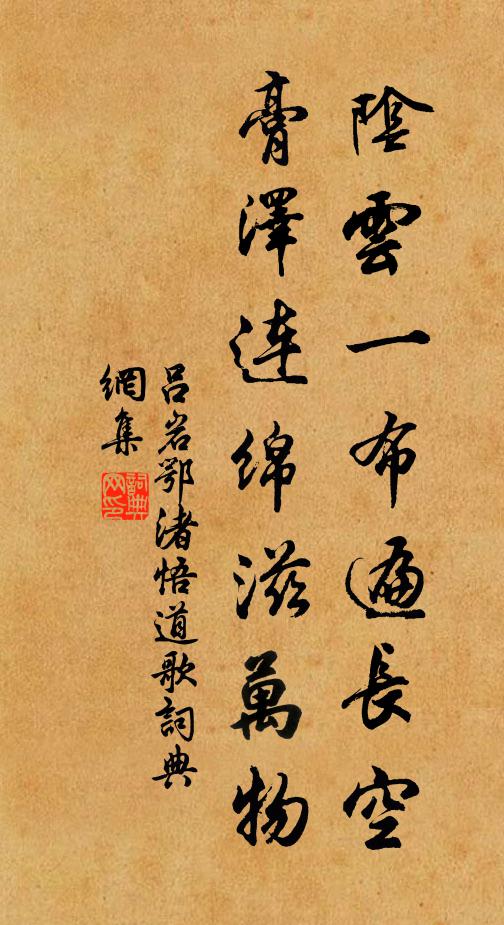 陰雲一布遍長空
膏澤連綿滋萬物
吕岩鄂渚悟道歌詞典
網集
詞典
网印